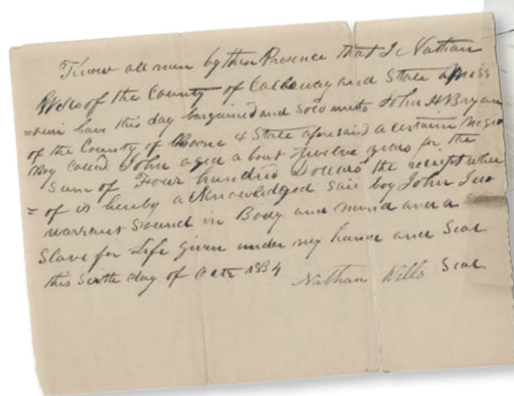 Know all men by these Presence that I Nathan
Wells of the County of Callaway and State of Miss
=ouri have this day bargained and Sold unto John H Bryan
of the County of Boone & State aforesaid a certain Negro
Boy Called John aged about Twelve years for the
Sum of Four hundred Dollars the receipt where
=of is hereby acknowledged said boy John I do
warrant Sound in Body and mind and a
Slave for Life given under my hand and Seal
this Sixth day of 1834
Nathan Wills Seal